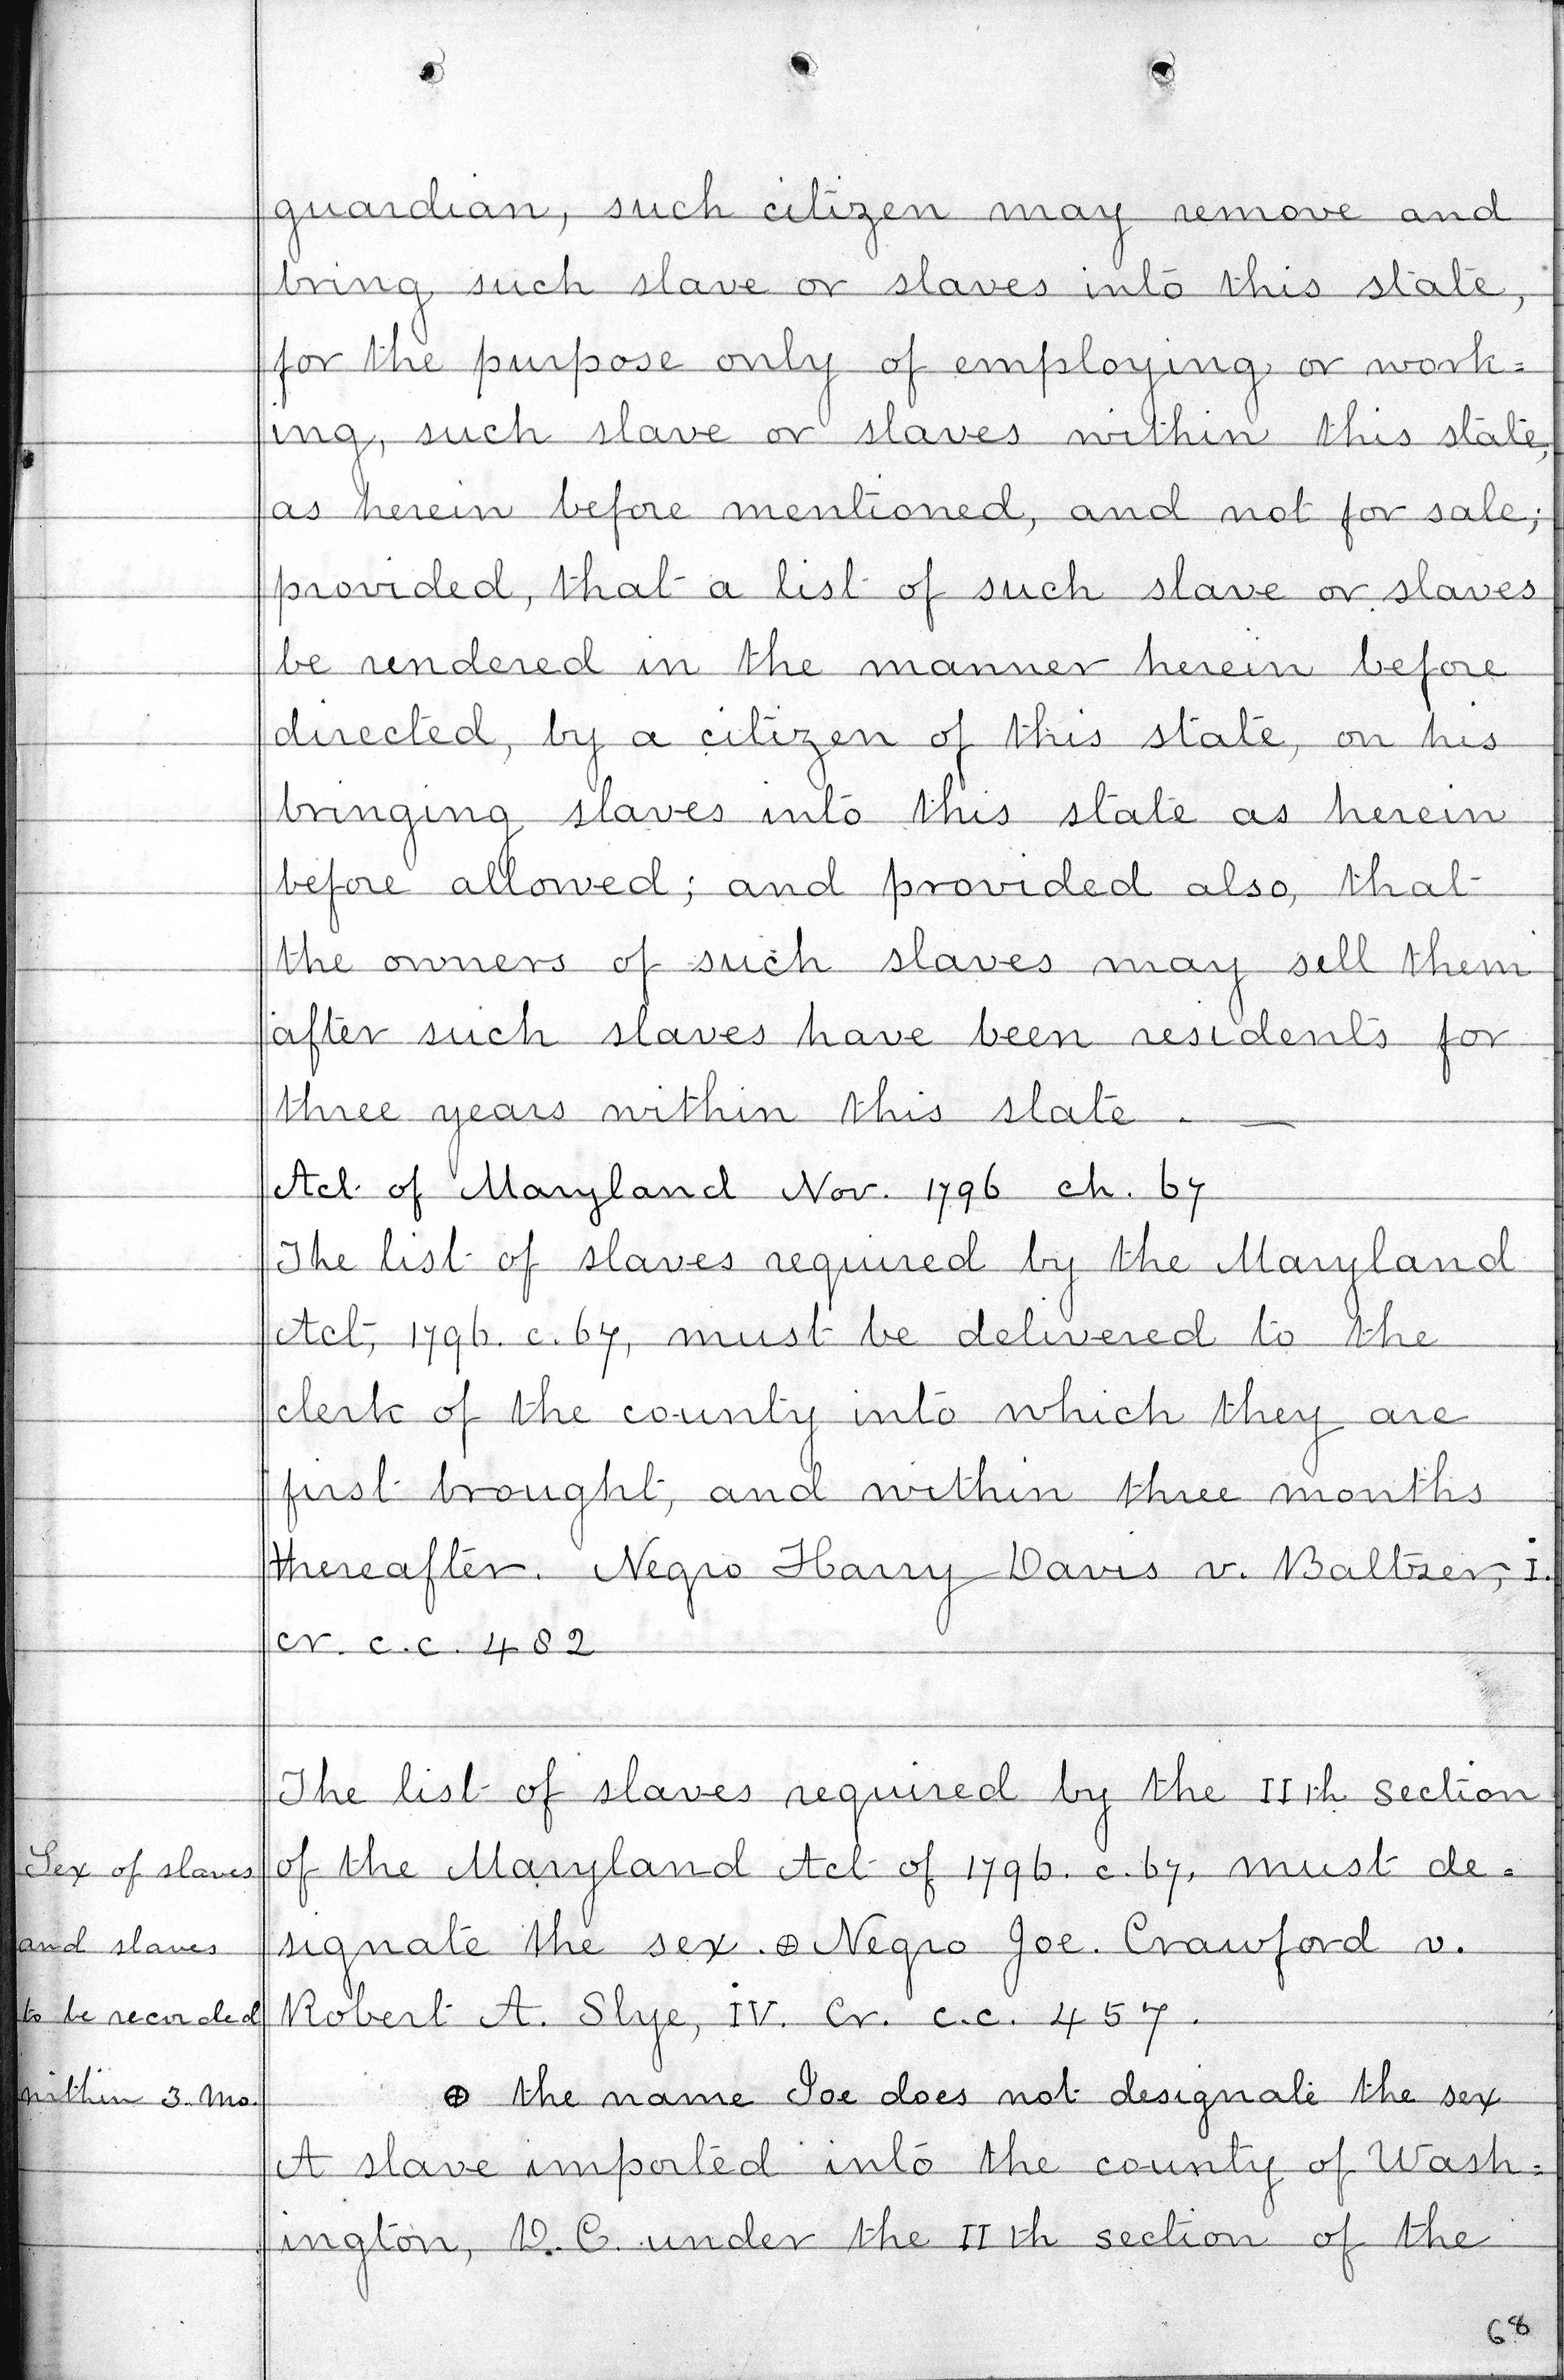 guardian, such citizen may remove and
bring such slave or slaves into this state,
for the purpose only of employing or work=
ing, such slave or slaves within this state,
as herein before mentioned, and not for sale;
provided, that a list of such slave or slaves
be rendered in the manner herein before
directed, by a citizen of this state, on his
bringing slaves into this state as herein
before allowed; and provided also, that
the owners of such slaves may sell them
after such slaves have been residents for
three years within this state. —
Act of Maryland Nov. 1796 ch. 67
The list of slaves required by the Maryland
Act, 1796. c. 67, must be delivered to the
clerk of the county into which they are
first brought, and within three months
thereafter. Negro Harry Davis v. Baltzer, I.
cr. c.c. 482
The list of slaves required by the IIth section
Sex of slaves
and slaves
to be recorded
within 3. Mo.
of the Maryland Act of 1796. c. 67, must de=
signate the sex. ⊕ Negro Joe. Crawford v.
Robert A. Slye, IV. Cr. c.c. 457.
⊕ the name Joe does not designate the sex
A slave imported into the county of Wash=
ington, D.C. under the IIth section of the
68